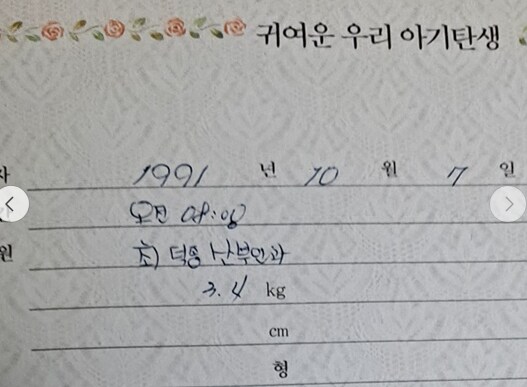 귀여운 우리 아기탄생
1991 년 10 월 7 일
오전 08:00
최) 덕종 산부인과
원
3.4 kg
cm
형